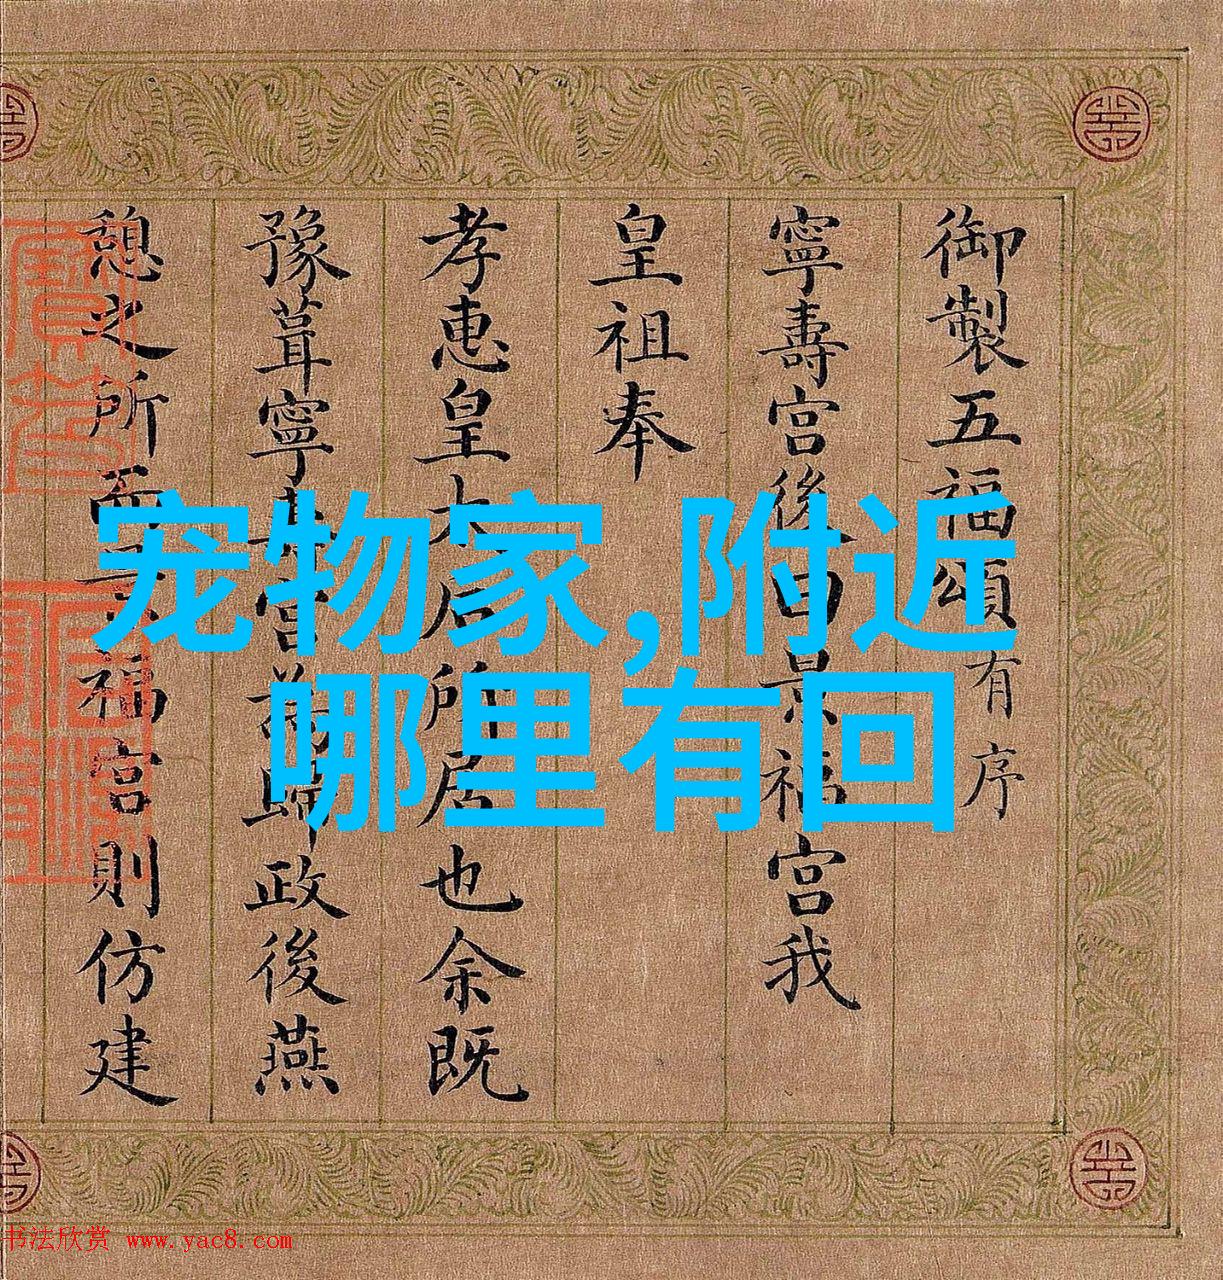 御製五福頌有序
寧壽宮後曰景福宮我
皇祖奉
孝惠皇太后所居也余既
豫葺寧壽宮為歸政後燕
憩之所而景福宮則仿建
宠物家,附近
哪里有回
书法欣赏 www.yac8.com